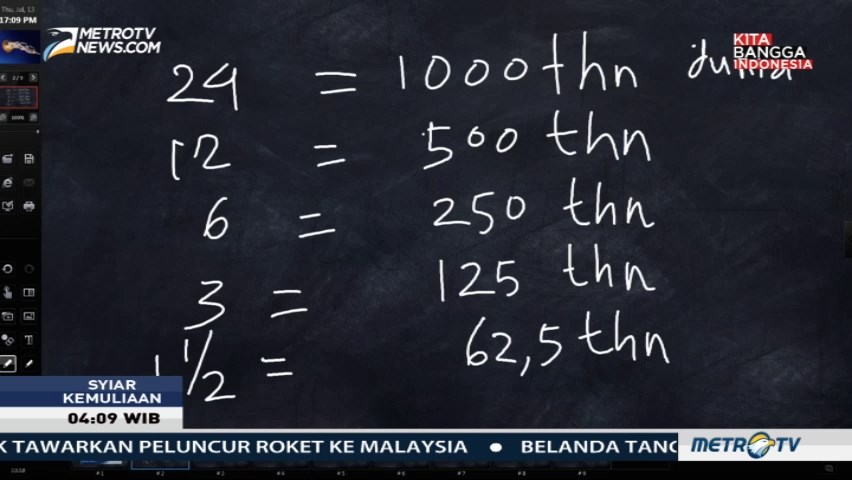 Thu, Jul, 13
17:09 PM
METROTV
NEWS.COM
KITA
BANGGA
INDONESIA
24 = 1000 thn dunia
12 = 500 thn
6 = 250 thn
3 = 125 thn
1 1/2 = 62,5 thn
SYIAR
KEMULIAAN
04:09 WIB
K TAWARKAN PELUNCUR ROKET KE MALAYSIA • BELANDA TANG
METRO TV